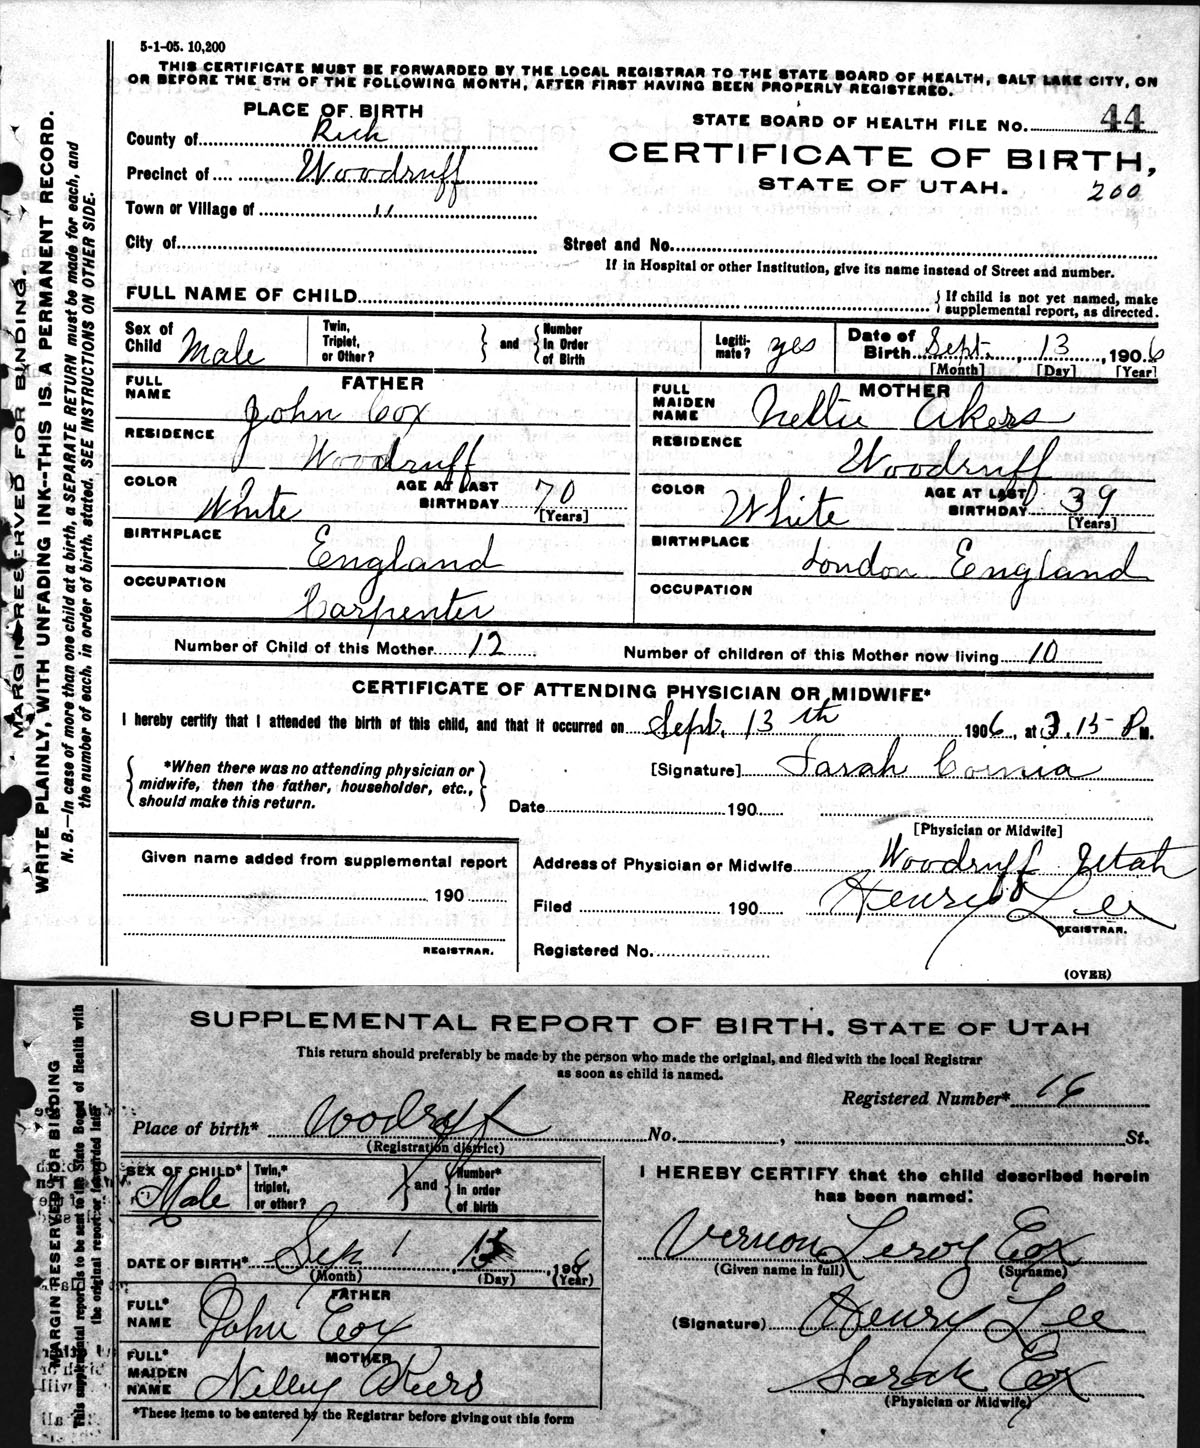 5-1-05. 10,200
THIS CERTIFICATE MUST BE FORWARDED BY THE LOCAL REGISTRAR TO THE STATE BOARD OF HEALTH, SALT LAKE CITY, ON
OR BEFORE THE 5TH OF THE FOLLOWING MONTH, AFTER FIRST HAVING BEEN PROPERLY REGISTERED.
PLACE OF BIRTH
County of Rich
Precinct of Woodruff
Town or Village of "
City of
STATE BOARD OF HEALTH FILE No. 44
CERTIFICATE OF BIRTH,
STATE OF UTAH.
200
Street and No.
If in Hospital or other Institution, give its name instead of Street and number.
FULL NAME OF CHILD
{ If child is not yet named, make
supplemental report, as directed.
Sex of Child Male
Twin, Triplet, or Other?
} and {
Number In Order of Birth
Legiti-mate? yes
Date of Birth Sept. , 13 , 1906
[Month] [Day] [Year]
FATHER
FULL NAME John Cox
RESIDENCE Woodruff
COLOR White
AGE AT LAST BIRTHDAY 70
[Years]
BIRTHPLACE England
OCCUPATION Carpenter
MOTHER
FULL MAIDEN NAME Nellie Akers
RESIDENCE Woodruff
COLOR White
AGE AT LAST BIRTHDAY 39
[Years]
BIRTHPLACE London England
OCCUPATION
Number of Child of this Mother 12
Number of children of this Mother now living 10
CERTIFICATE OF ATTENDING PHYSICIAN OR MIDWIFE*
I hereby certify that I attended the birth of this child, and that it occurred on Sept. 13th 1906, at 3.15 P M.
{ *When there was no attending physician or
midwife, then the father, householder, etc.,
should make this return. }
[Signature] Sarah Cornia
Date 190
[Physician or Midwife]
Given name added from supplemental report
190
REGISTRAR.
Address of Physician or Midwife Woodruff Utah
Filed 190 Henry Lee
REGISTRAR.
Registered No.
(OVER)
MARGIN RESERVED FOR BINDING.
WRITE PLAINLY, WITH UNFADING INK--THIS IS A PERMANENT RECORD.
N. B.—In case of more than one child at a birth, a SEPARATE RETURN must be made for each, and
the number of each, in order of birth, stated. SEE INSTRUCTIONS ON OTHER SIDE.
SUPPLEMENTAL REPORT OF BIRTH. STATE OF UTAH
This return should preferably be made by the person who made the original, and filed with the local Registrar
as soon as child is named.
Registered Number* 16
Place of birth* Woodruff No. , St.
(Registration district)
SEX OF CHILD* Male
Twin,* triplet, or other?
} and {
Number* in order of birth
DATE OF BIRTH* Sept 13 , 1906
(Month) (Day) (Year)
FATHER
FULL* NAME John Cox
MOTHER
FULL* MAIDEN NAME Nelley Akers
*These items to be entered by the Registrar before giving out this form
I HEREBY CERTIFY that the child described herein
has been named:
Vernon Leroy Cox
(Given name in full) (Surname)
(Signature) Henry Lee
Sarah Cox
(Physician or Midwife)
MARGIN RESERVED FOR BINDING
This supplemental report is to be sent to the State Board of Health with
the original report or forwarded later